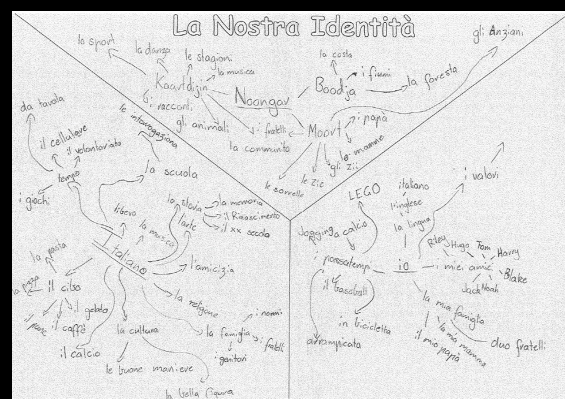 La Nostra Identità
lo sport
la danza
le stagioni
la musica
Kaartdijin
i racconti
gli animali
Noongar
Boodja
la costa
i fiumi
la foresta
gli Anziani
Moort
i papà
le mamme
gli zii
le zie
le sorelle
i fratelli
la communito
Italiano
da tavola
il cellulare
il volontariato
i giochi
tempo
libero
le interrogazione
la scuola
la musica
la storia
l'arte
la memoria
il Rinascimento
il xx secolo
l'amicizia
la religione
la famiglia
i nonni
i fratelli
i genitori
la cultura
le buone maniere
la bella figura
il calcio
il cibo
la pasta
la pizza
il pane
il caffè
il gelato
io
LEGO
jogging
calcio
i passatempi
il baseball
in bicicletta
arrampicata
italiano
l'inglese
la lingua
i valori
miei amici
Riley
Hugo
Tom
Harry
Blake
Noah
Jack
la mia famiglia
la mia mamma
il mio papà
due fratelli